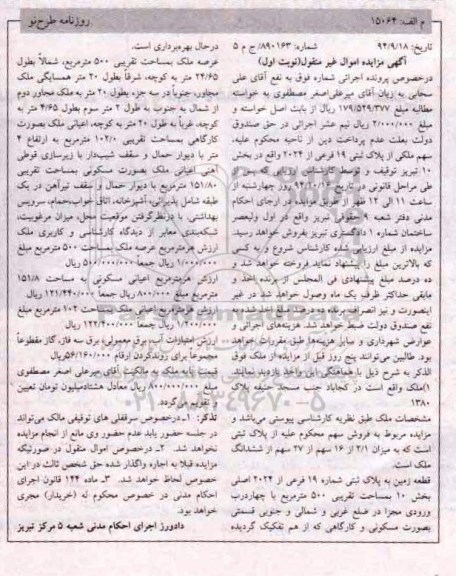 م الف: ۱۵۰۶۴
روزنامه طرح‌نو
تاریخ: ۹۴/۹/۱۸ شماره: ۸۹۰۱۶۳/ ج م ۵
آگهی مزایده اموال غیر منقول(نوبت اول)
درخصوص پرونده اجرائی شماره فوق به نفع آقای علی
سبحانی به زیان آقای میرعلی‌اصغر مصطفوی به خواسته
مطالبه مبلغ ۱۷۹/۵۲۹/۳۷۷ ریال از بابت اصل خواسته و
مبلغ ۲/۰۰۰/۰۰۰ ریال نیم عشر اجرائی در حق صندوق
دولت بعلت عدم پرداخت دین از ناحیه محکوم علیه،
سهم ملکی از پلاک ثبتی ۱۹ فرعی از ۲۰۲۴ واقع در بخش
۱۰ تبریز توقیف و توسط کارشناس ارزیابی که پس از
طی مراحل قانونی در تاریخ ۹۴/۱۰/۱۶ روز چهارشنبه از
ساعت ۱۱ الی ۱۲ ظهر از طریق مزایده در اجرای احکام
مدنی دفتر شعبه ۹ حقوقی تبریز واقع در اول ولیعصر
ساختمان شماره ۱ دادگستری تبریز بفروش خواهد رسید.
مزایده از مبلغ ارزیابی شده کارشناس شروع و به کسی
که بالاترین مبلغ را پیشنهاد نماید فروخته خواهد شد و
ده درصد مبلغ پیشنهادی فی المجلس از برنده اخذ و
مابقی حداکثر ظرف یک ماه وصول خواهد شد در غیر
اینصورت و نیز انصراف برنده ده درصد واریز شده به
نفع صندوق دولت ضبط خواهد شد. هزینه‌های اجرائی و
عوارض شهرداری و سایر هزینه‌ها طبق مقررات خواهد
بود. طالبین می‌توانند پنج روز قبل از مزایده از ملک فوق
الذکر به شرح ذیل با هماهنگی این واحد بازدید نمایند.
۱)ملک واقع است در کجاباد جنب مسجد حنیفه پلاک
۱۳۸۰
مشخصات ملک طبق نظریه کارشناسی پیوستی می‌باشد و
مزایده مربوط به فروش سهم محکوم علیه از پلاک ثبتی
است که به میزان ۲/۱ از ۱۶ سهم از ۲۷ سهم از ششدانگ
ملک است.
قطعه زمین به پلاک ثبتی شماره ۱۹ فرعی از ۲۰۲۴ اصلی
بخش ۱۰ بمساحت تقریبی ۵۰۰ مترمربع با چهاردرب
ورودی مجزا در ضلع غربی و شمالی و جنوبی قسمتی
بصورت مسکونی و کارگاهی که از هم تفکیک گردیده
درحال بهره‌برداری است.
عرصه ملک بمساحت تقریبی ۵۰۰ مترمربع، شمالاً بطول
۲۴/۶۵ متر به کوچه، شرقاً بطول ۲۰ متر همسایگی ملک
مجاور، جنوباً در سه جزء، بطول ۲۰ متر به ملک مجاور دوم
از شمال به جنوب به طول ۲ متر سوم بطول ۴/۶۵ متر به
کوچه، غرباً به طول ۲۰ متر به کوچه، اعیانی ملک بصورت
کارگاهی بمساحت تقریبی ۱۰۲/۰ مترمربع به ارتفاع ۴
متر با دیوار حمال و سقف شیب‌دار با زیرسازی قوطی
آهنی اعیانی ملک بصورت مسکونی بمساحت تقریبی
۱۵۱/۸۰ مترمربع با دیوار حمال و سقف تیرآهن در یک
طبقه شامل پذیرائی، آشپزخانه، اتاق خواب، حمام، سرویس
بهداشتی. با درنظرگرفتن موقعیت محل، میزان مرغوبیت،
شبکه‌بندی، معابر از دیدگاه کارشناسی و کاربری ملک
ارزش هرمترمربع عرصه ملک بمساحت ۵۰۰ مترمربع مبلغ
۱/۰۰۰/۰۰۰ ریال جمعاً ۵۰۰/۰۰۰/۰۰۰ ریال
ارزش هرمترمربع اعیانی مسکونی به مساحت ۱۵۱/۸
مترمربع مبلغ ۸۰۰/۰۰۰ ریال جمعاً ۱۲۱/۴۴۰/۰۰۰ ریال
ارزش هرمترمربع اعیانی ملک بمساحت ۱۰۲ مترمربع مبلغ
۱/۲۰۰/۰۰۰ ریال جمعاً ۱۲۲/۴۰۰/۰۰۰ ریال
ارزش امتیازات آب، برق معمولی، برق سه فاز، گاز مقطوعاً
مجموعاً برای روندکردن ارقام ۵۶/۱۶۰/۰۰۰ ریال
قیمت کل پایه ملک به مالکیت آقای میرعلی اصغر مصطفوی
مبلغ ۸۰۰/۰۰۰/۰۰۰ ریال معادل هشتادمیلیون تومان تعیین
و تقویم می‌گردد.
تذکر: ۱ـ درخصوص سرقفلی های توقیفی مالک می‌تواند
در جلسه حضور یابد عدم حضور وی مانع از انجام مزایده
نخواهد شد. ۲ـ درخصوص اموال منقول در صورتیکه
مزایده قبلا به اجاره واگذار شده حق شخص ثالث در این
خصوص لحاظ خواهد شد. ۳ـ ماده ۱۴۴ قانون اجرای
احکام مدنی در خصوص محکوم له (خریدار) مجری
خواهد بود.
دادورز اجرای احکام مدنی شعبه ۵ مرکز تبریز